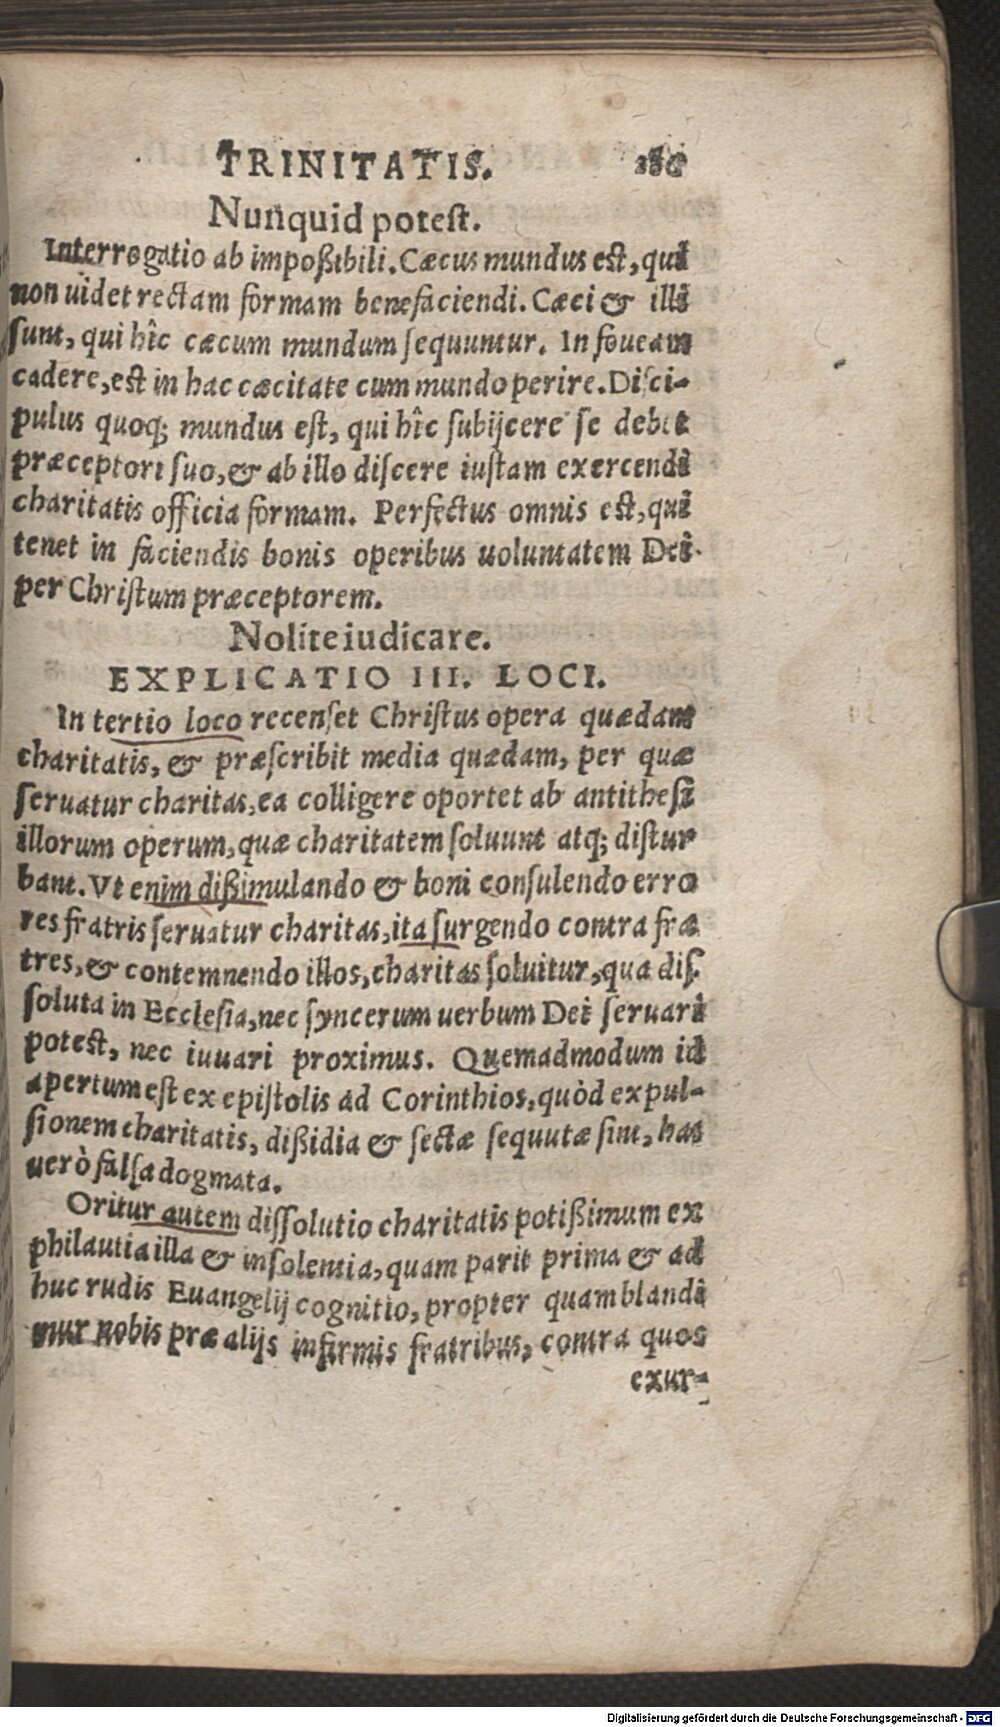 TRINITATIS. 186
Nunquid potest.
Interrogatio ab impoßibili. Cæcus mundus est, qui
non uidet rectam formam benefaciendi. Cæci & illi
sunt, qui hîc cæcum mundum sequuntur. In foueam
cadere, est in hac cæcitate cum mundo perire. Disci-
pulus quoq; mundus est, qui hîc subijcere se debet
præceptori suo, & ab illo discere iustam exercendi
charitatis officia formam. Perfectus omnis est, qui
tenet in faciendis bonis operibus uoluntatem Dei
per Christum præceptorem.
Nolite iudicare.
EXPLICATIO III. LOCI.
In tertio loco recenset Christus opera quædam
charitatis, & præscribit media quædam, per quæ
seruatur charitas, ea colligere oportet ab antithesi
illorum operum, quæ charitatem soluunt atq; distur
bant. Vt enim dißimulando & boni consulendo erro
res fratris seruatur charitas, ita surgendo contra fra
tres, & contemnendo illos, charitas soluitur, qua dis-
soluta in Ecclesia, nec syncerum uerbum Dei seruari
potest, nec iuuari proximus. Quemadmodum id
apertum est ex epistolis ad Corinthios, quòd expul-
sionem charitatis, dißidia & sectæ sequutæ sint, has
uerò falsa dogmata.
Oritur autem dissolutio charitatis potißimum ex
philautia illa & insolentia, quam parit prima & ad
huc rudis Euangelij cognitio, propter quam blandi
mur nobis præ alijs infirmis fratribus, contra quos
exur-
Digitalisierung gefördert durch die Deutsche Forschungsgemeinschaft - DFG